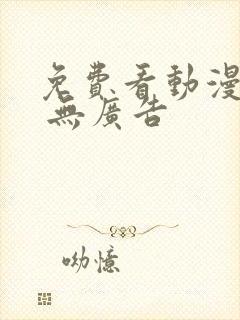 免費看動漫
無廣告
呦憶